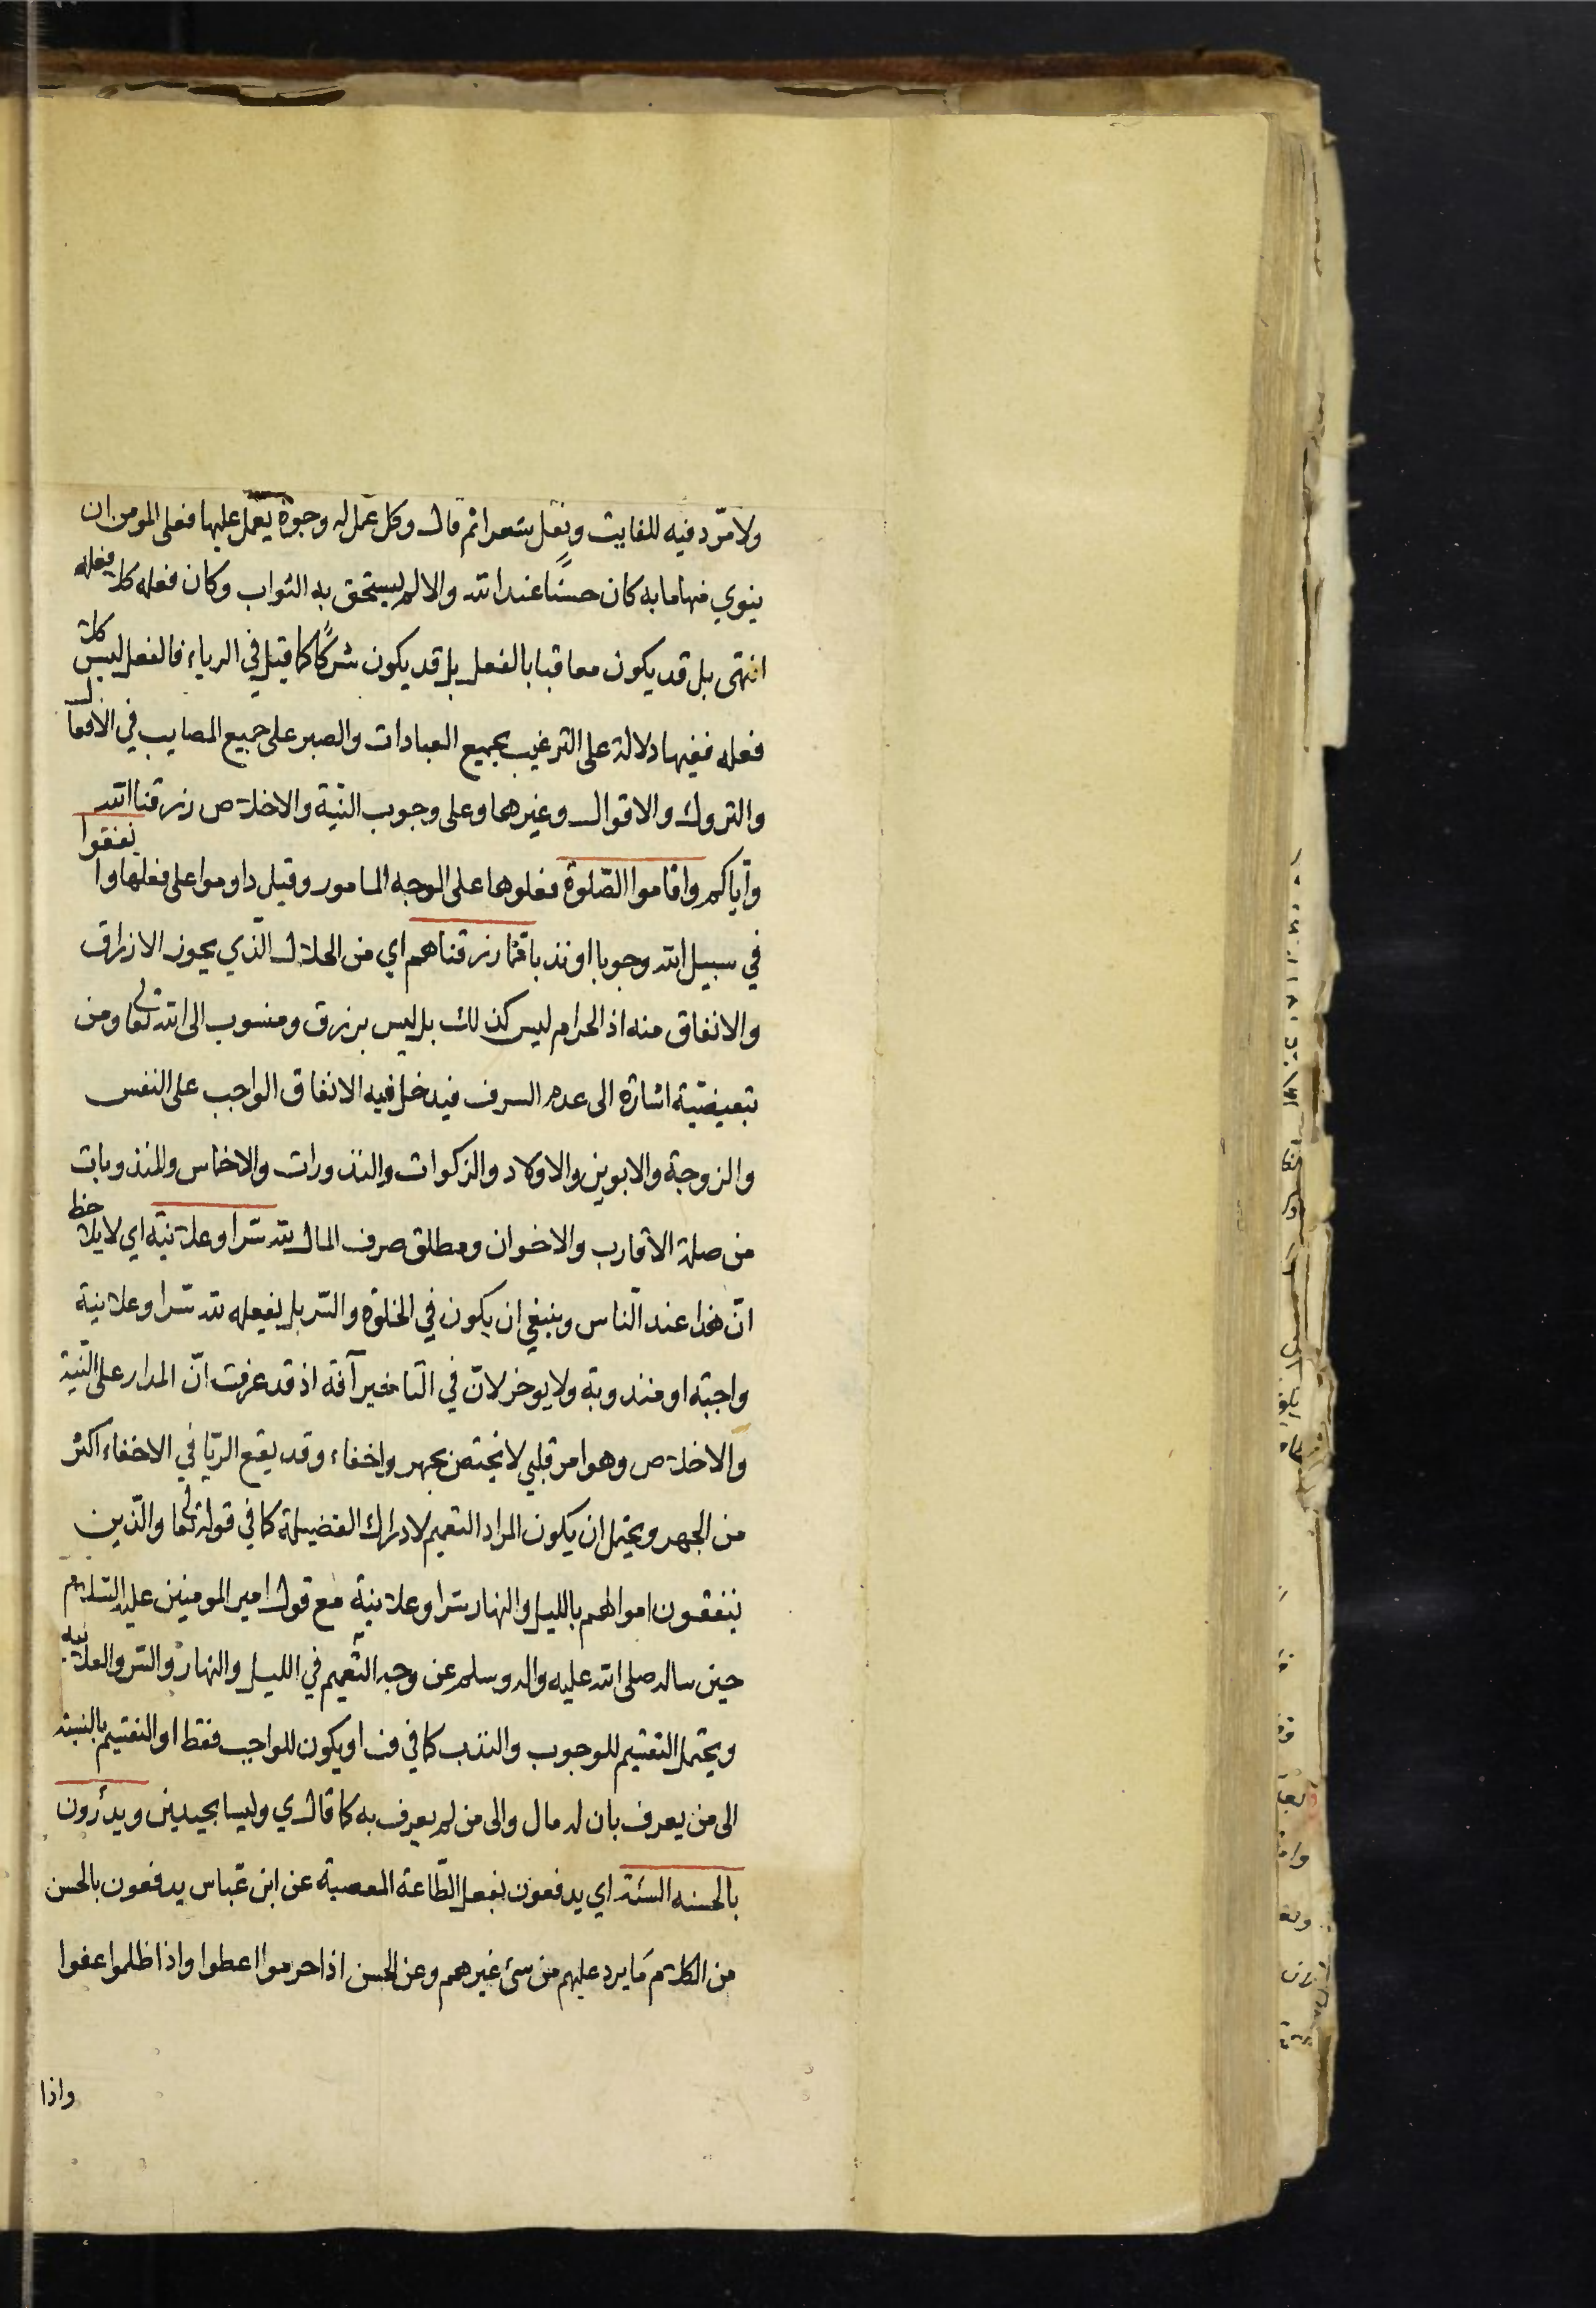 ولا مرّد فيه للفايت ونقل شعرا ثم قال وكل عمل له وجوه يعمل عليها فعلى المومن ان
ينوي منها ما به كان حسنًا عند الله والا لم يستحق به الثواب وكان فعله كلا فعله
انتهى بل قد يكون معاقبا بالفعل بل قد يكون شركًا كما قيل في الرياء فالفعل ليس كلا
فعله ففيها دلالة على الترغيب بجميع العبادات والصبر على جميع المصايب في الأفعال
والتروك والاقوال وغيرهما وعلى وجوب النيّة والاخلاص رزقنا الله
وايّاكم واقاموا الصّلوة فعلوها على الوجه المامور وقيل داوموا على فعلها وانفقوا
في سبيل الله وجوبا او ندبا ممّا رزقناهم اي من الحلال الّذي يجوز الارزاق
والانفاق منه اذ الحرام ليس كذلك بل ليس برزق ومنسوب الى الله تعالى ومن
تبعيضيّة اشارة الى عدم السرف فيدخل فيه الانفاق الواجب على النفس
والزوجة والابوين والاولاد والزكوات والنذورات والاخماس والمندوبات
من صلة الاقارب والاخوان ومطلق صرف المال لله سّرا وعلانية اي لا يلاحظ
انّ هذا عند النّاس وينبغي ان يكون في الخلوة والسّر بل يفعله لله سّرا وعلانية
واجبة او مندوبة ولا يوخر لانّ في التاخير آفة اذ قد عرفت انّ المدار على النّية
والاخلاص وهو امر قلبي لا يختص بجهر واخفاء وقد يقع الريّا في الاخفاء اكثر
من الجهر ويحتمل ان يكون المراد التعميم لادراك الفضيلة كما في قوله تعالى والّذين
ينفقون اموالهم بالليل والنهار سّرا وعلانية مع قول امير المومنين عليه السّلام
حين ساله صلى الله عليه واله وسلم عن وجه التّعميم في الليل والنهار والسّر والعلانيه
ويحتمل التقسيم للوجوب والندب كما في ف او يكون للواجب فقط او التقسيم بالنسبة
الى من يعرف بان له مال والى من لم يعرف به كما قال ي وليسا بجيدين ويدرؤن
بالحسنه السئة اي يدفعون بفعل الطّاعة المعصية عن ابن عبّاس يدفعون بالحسن
من الكلام ما يرد عليهم من سئ غيرهم وعن الحسن اذا حرموا اعطوا واذا ظلموا عفوا
واذا